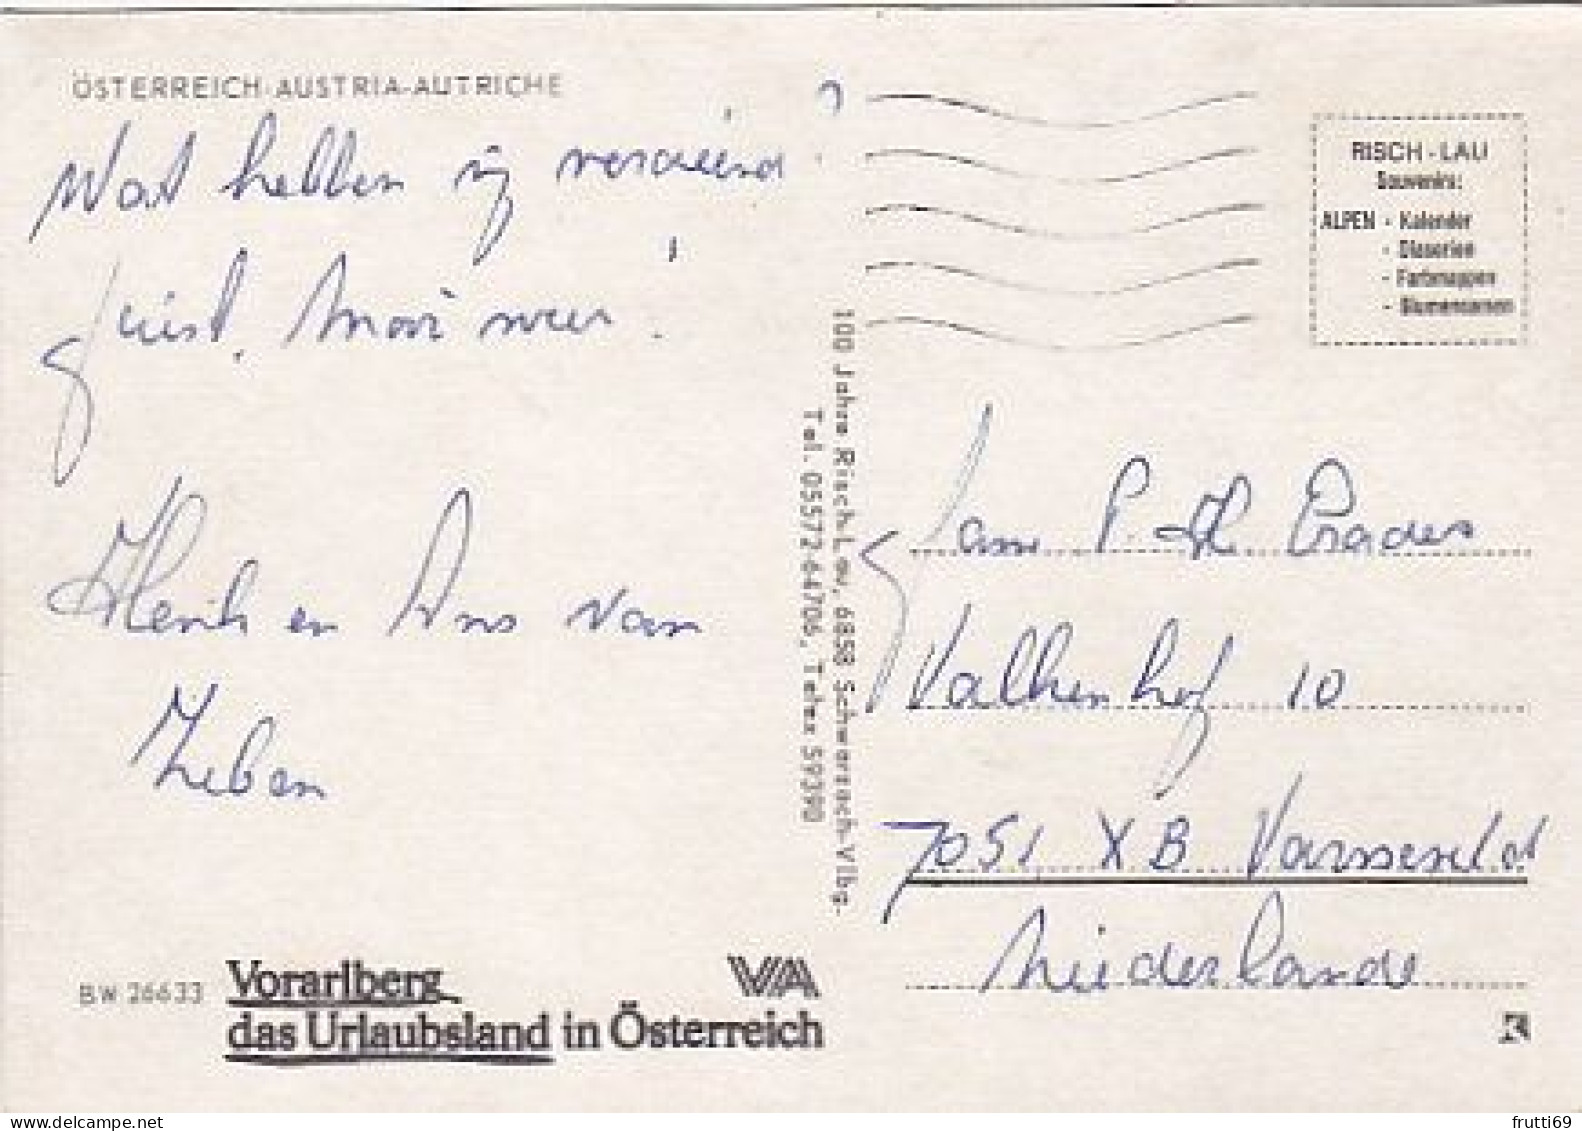 ÖSTERREICH-AUSTRIA-AUTRICHE
Wat hebben wij verdiend ?
juist, Mooi weer!
Henk en Ans van
Zeben
BW 26633
Vorarlberg
das Urlaubsland in Österreich
VA
100 Jahre Risch-Lau, 6858 Schwarzach-Vlbg.
Tel. 05572-64706, Telex 59390
RISCH-LAU
Souvenirs:
ALPEN - Kalender
- Glaserien
- Farbmappen
- Blumenserien
Fam P. H. Prades
Valkenhof 10
7051 XB Varsseveld
Niederlande
frutti69